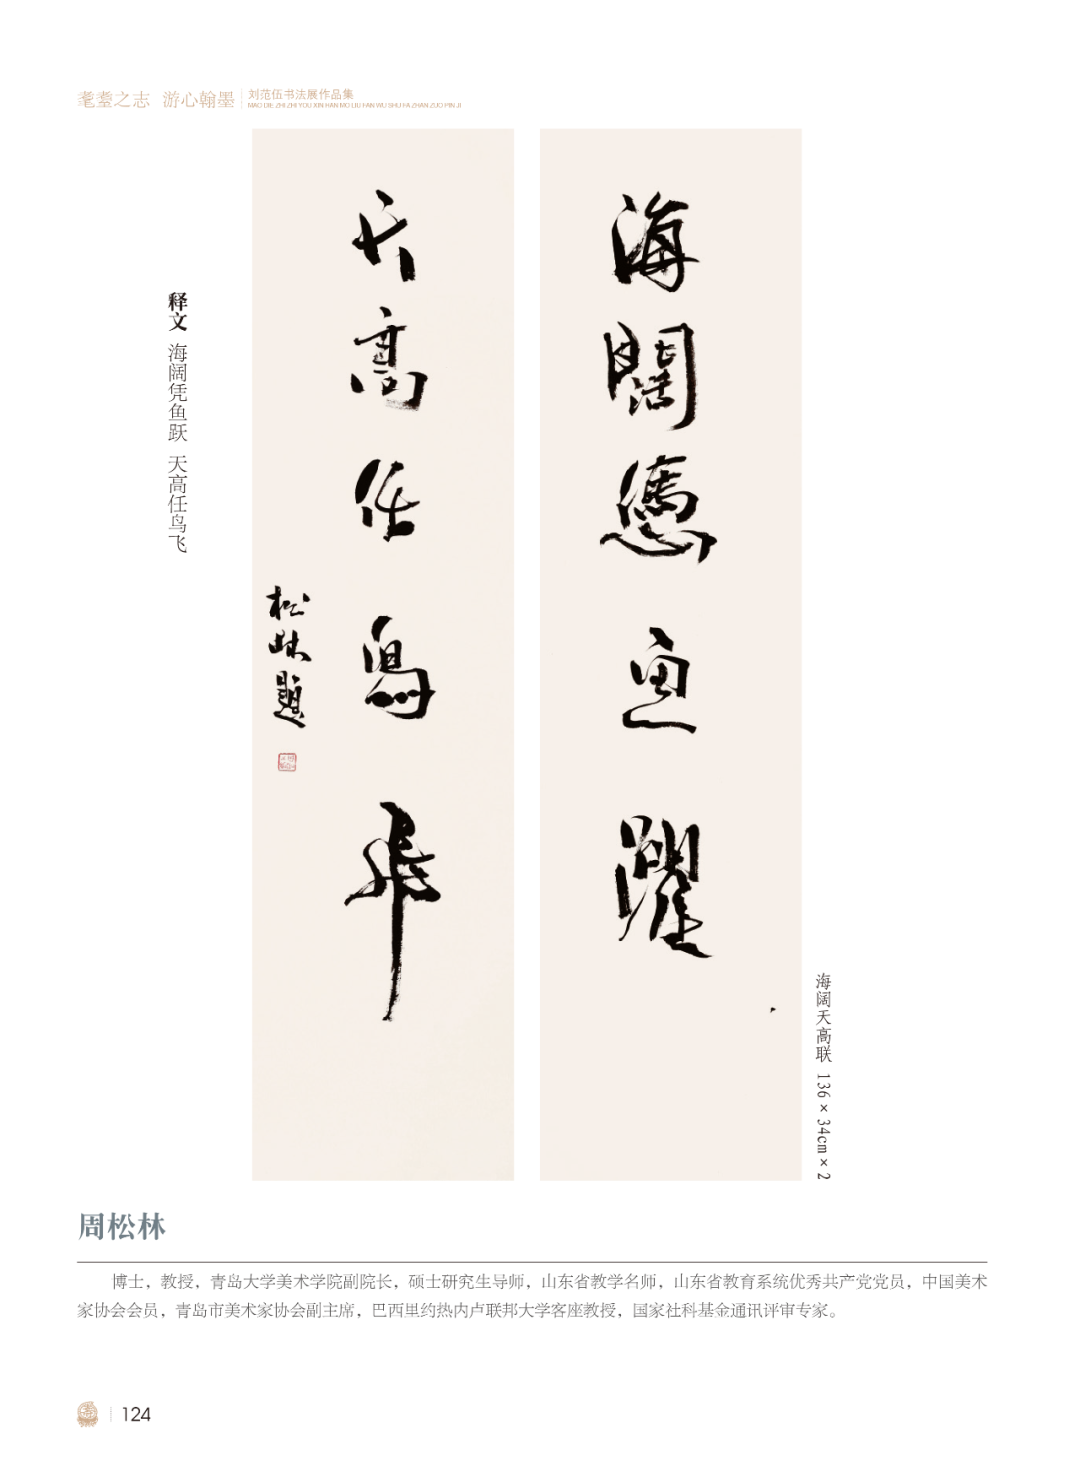 耄耋之志 游心翰墨
刘范伍书法展作品集
MAO DIE ZHI ZHI YOU XIN HAN MO LIU FAN WU SHU FA ZHAN ZUO PIN JI
海闊憑魚躍
天高任鳥飛
松林題
释文 海阔凭鱼跃 天高任鸟飞
海阔天高联 136×34cm×2
周松林
博士，教授，青岛大学美术学院副院长，硕士研究生导师，山东省教学名师，山东省教育系统优秀共产党党员，中国美术
家协会会员，青岛市美术家协会副主席，巴西里约热内卢联邦大学客座教授，国家社科基金通讯评审专家。
124